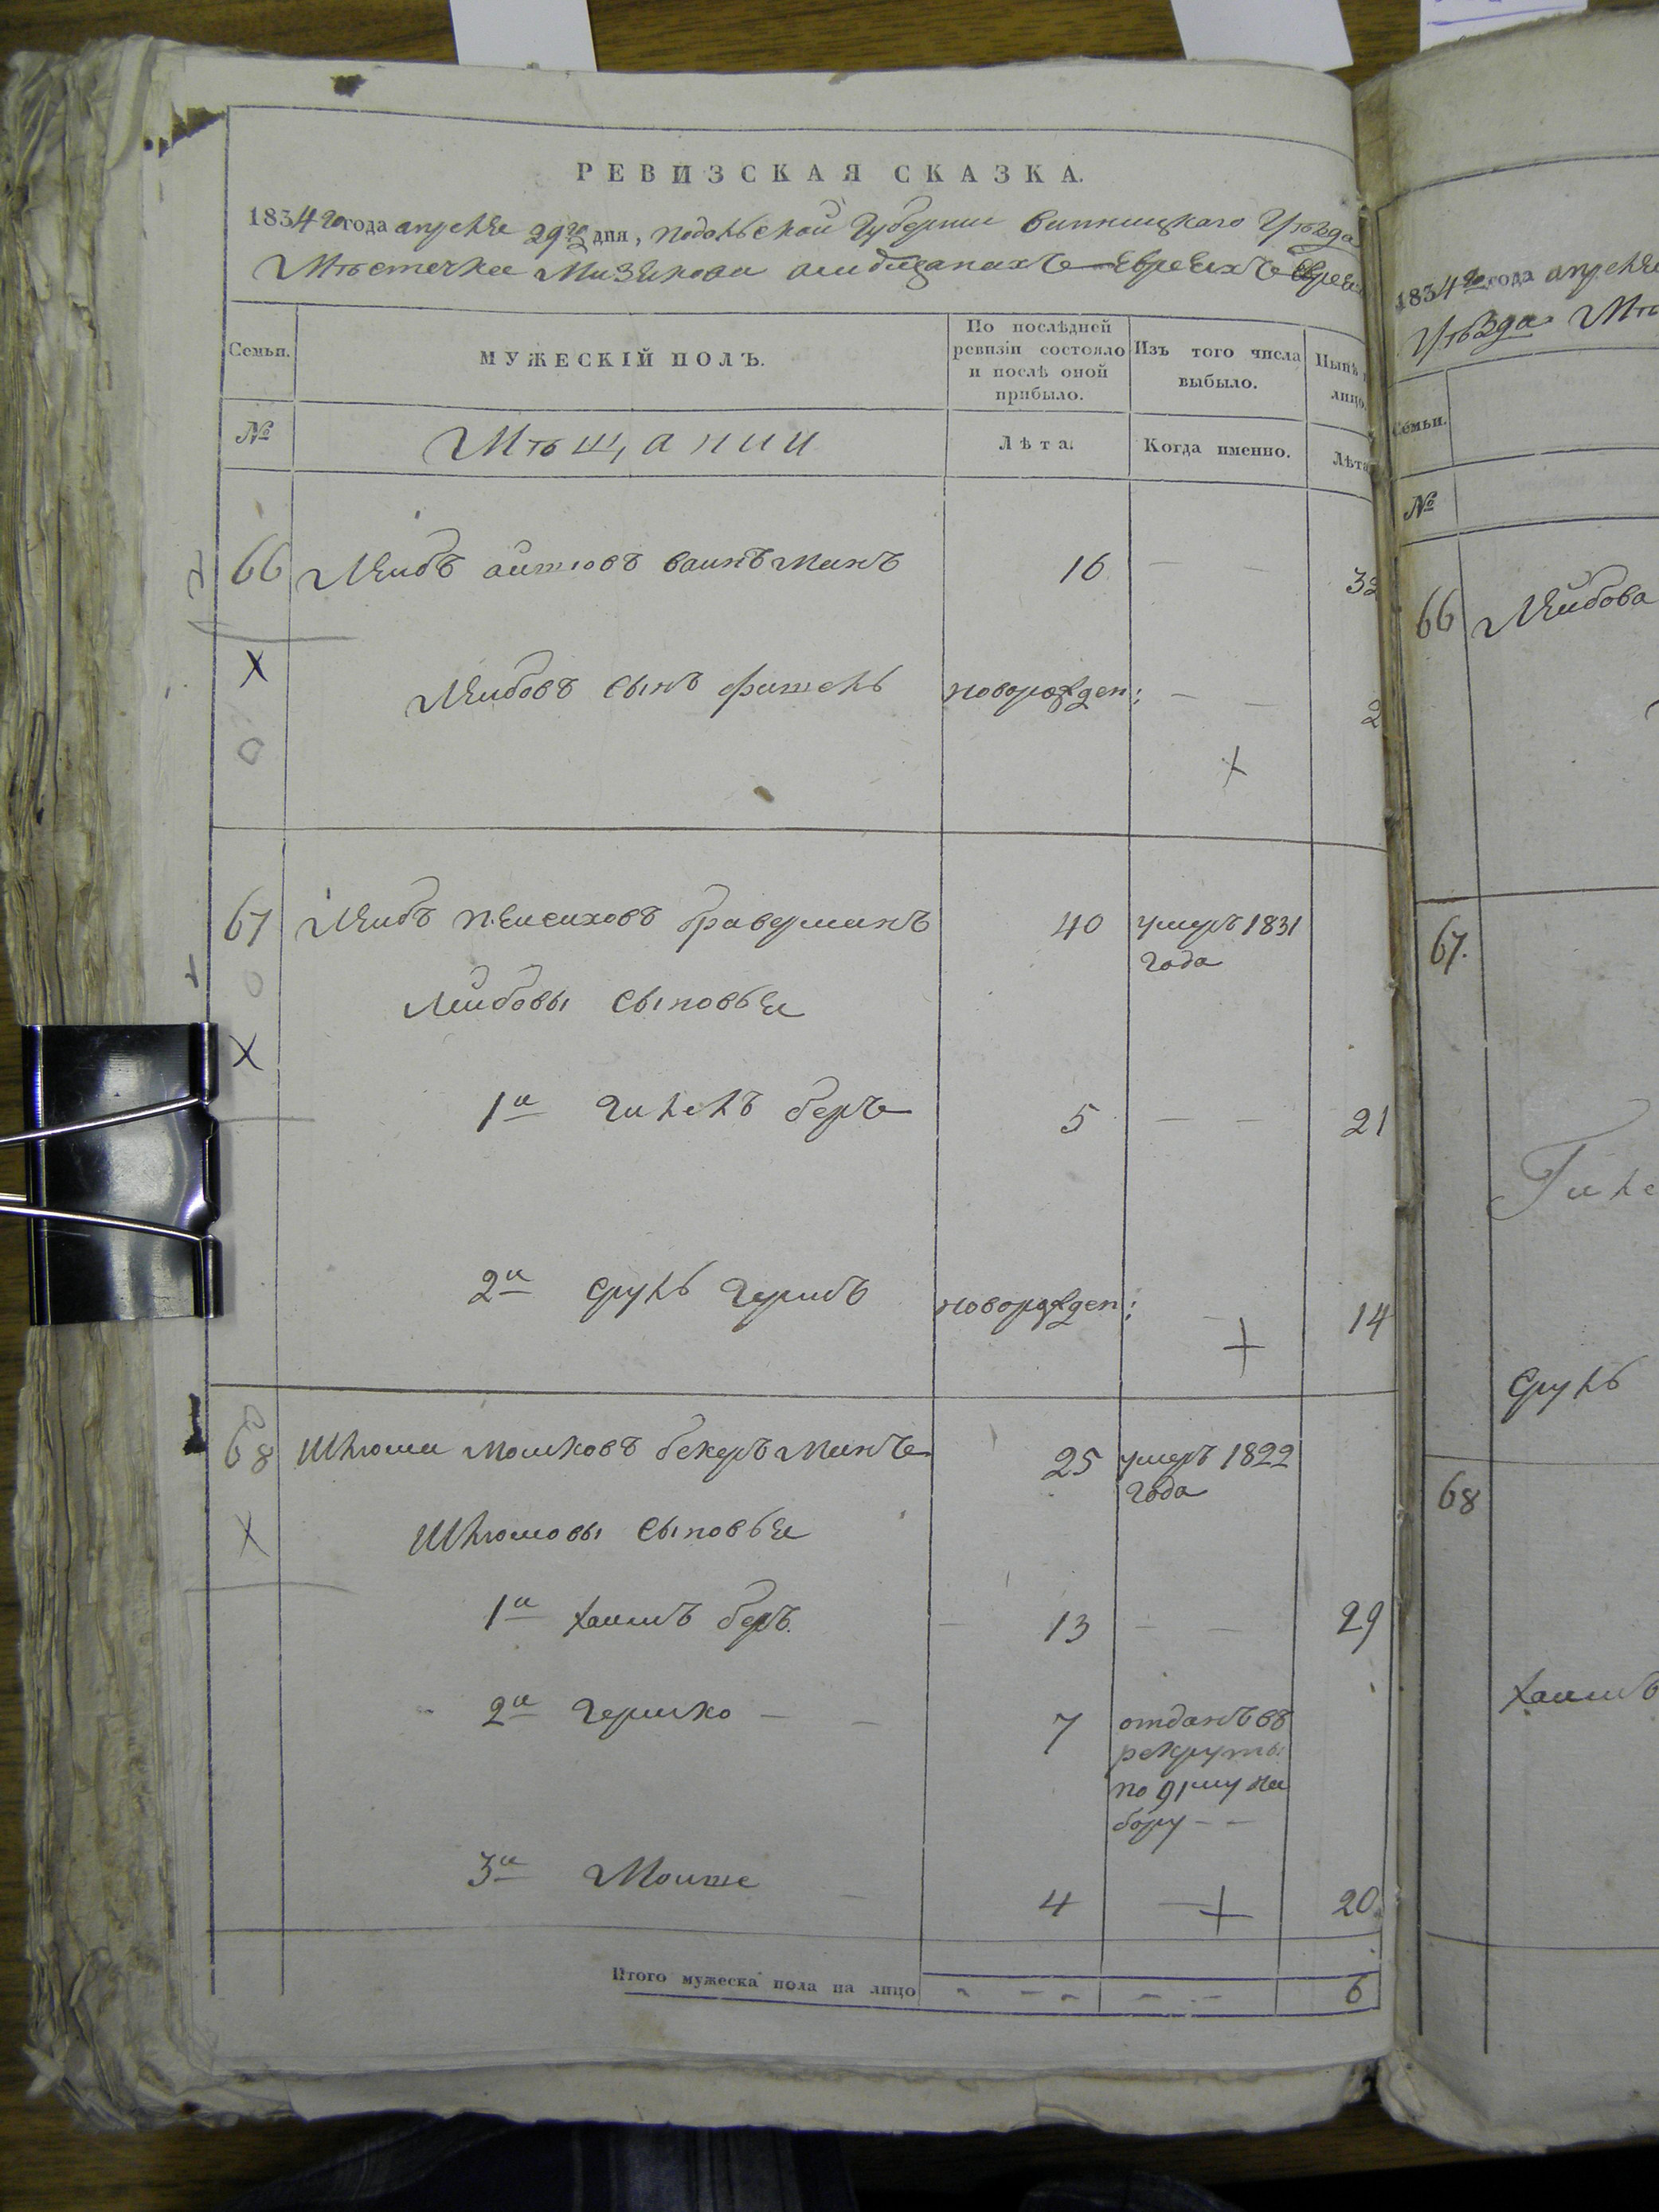 РЕВИЗСКАЯ СКАЗКА.
1834го года апреля 29го дня, подольской Губернии винницкаго Уѣзда
Мѣстечка Мизякова о мещанахъ Евреяхъ
Семьи.
МУЖЕСКІЙ ПОЛЪ.
По послѣдней ревизіи состояло и послѣ оной прибыло.
Изъ того числа выбыло.
Нынѣ
лицо.
№
Мѣщании
Лѣта.
Когда именно.
Лѣта
66 Леибъ аитовъ ваинъманъ 16 — — 32
Леибовъ сынъ фишель новорожден: — — 2
67 Леибъ пеисиховъ браверманъ 40 умеръ 1831 года
Леибовы сыновья
1й гилель беръ 5 — — 21
2й сруль гершъ новорожден: — 14
68 Шлюма мошковъ бекеръманъ 25 умеръ 1822 года
Шлюмовы сыновья
1й хаимъ беръ. — 13 — — 29
2й гершко — — 7 отданъ въ
рекруты
по 91му на
бору — —
3й Моише — 4 — 20
Итого мужеска пола на лицо 6
1834го года апреля
Уѣзда Мѣ
Семьи.
№
66 Леибова
67.
Гиле
Сруль
68
хаимъ